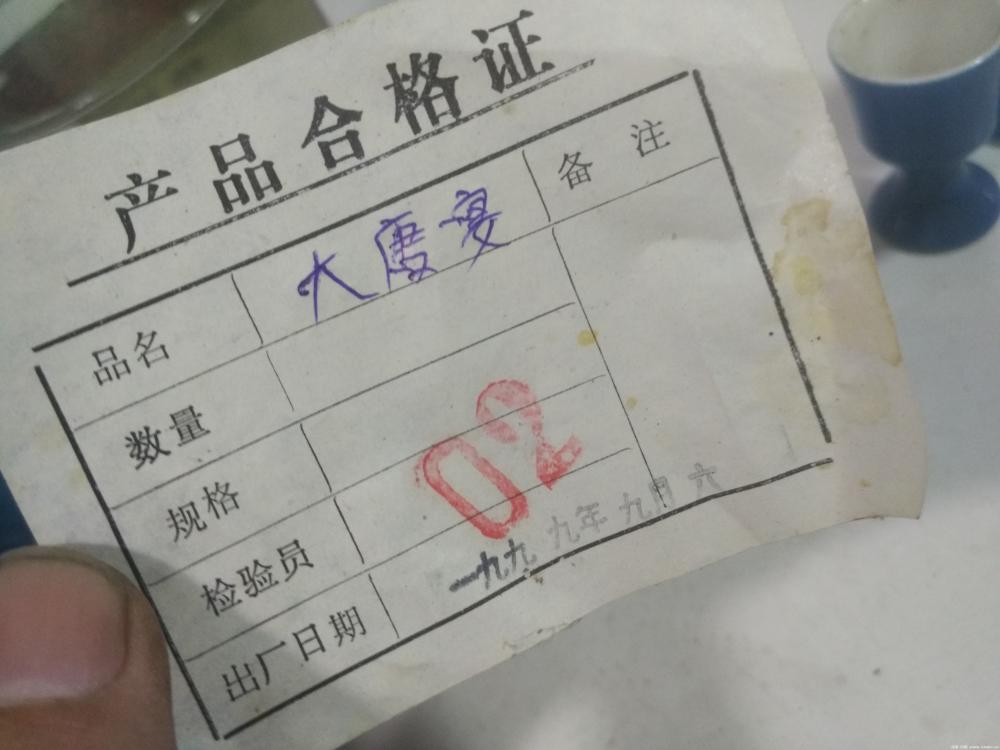 产品合格证
品名 大唐宴 备注
数量
规格
检验员 02
出厂日期 一九九九年九月六